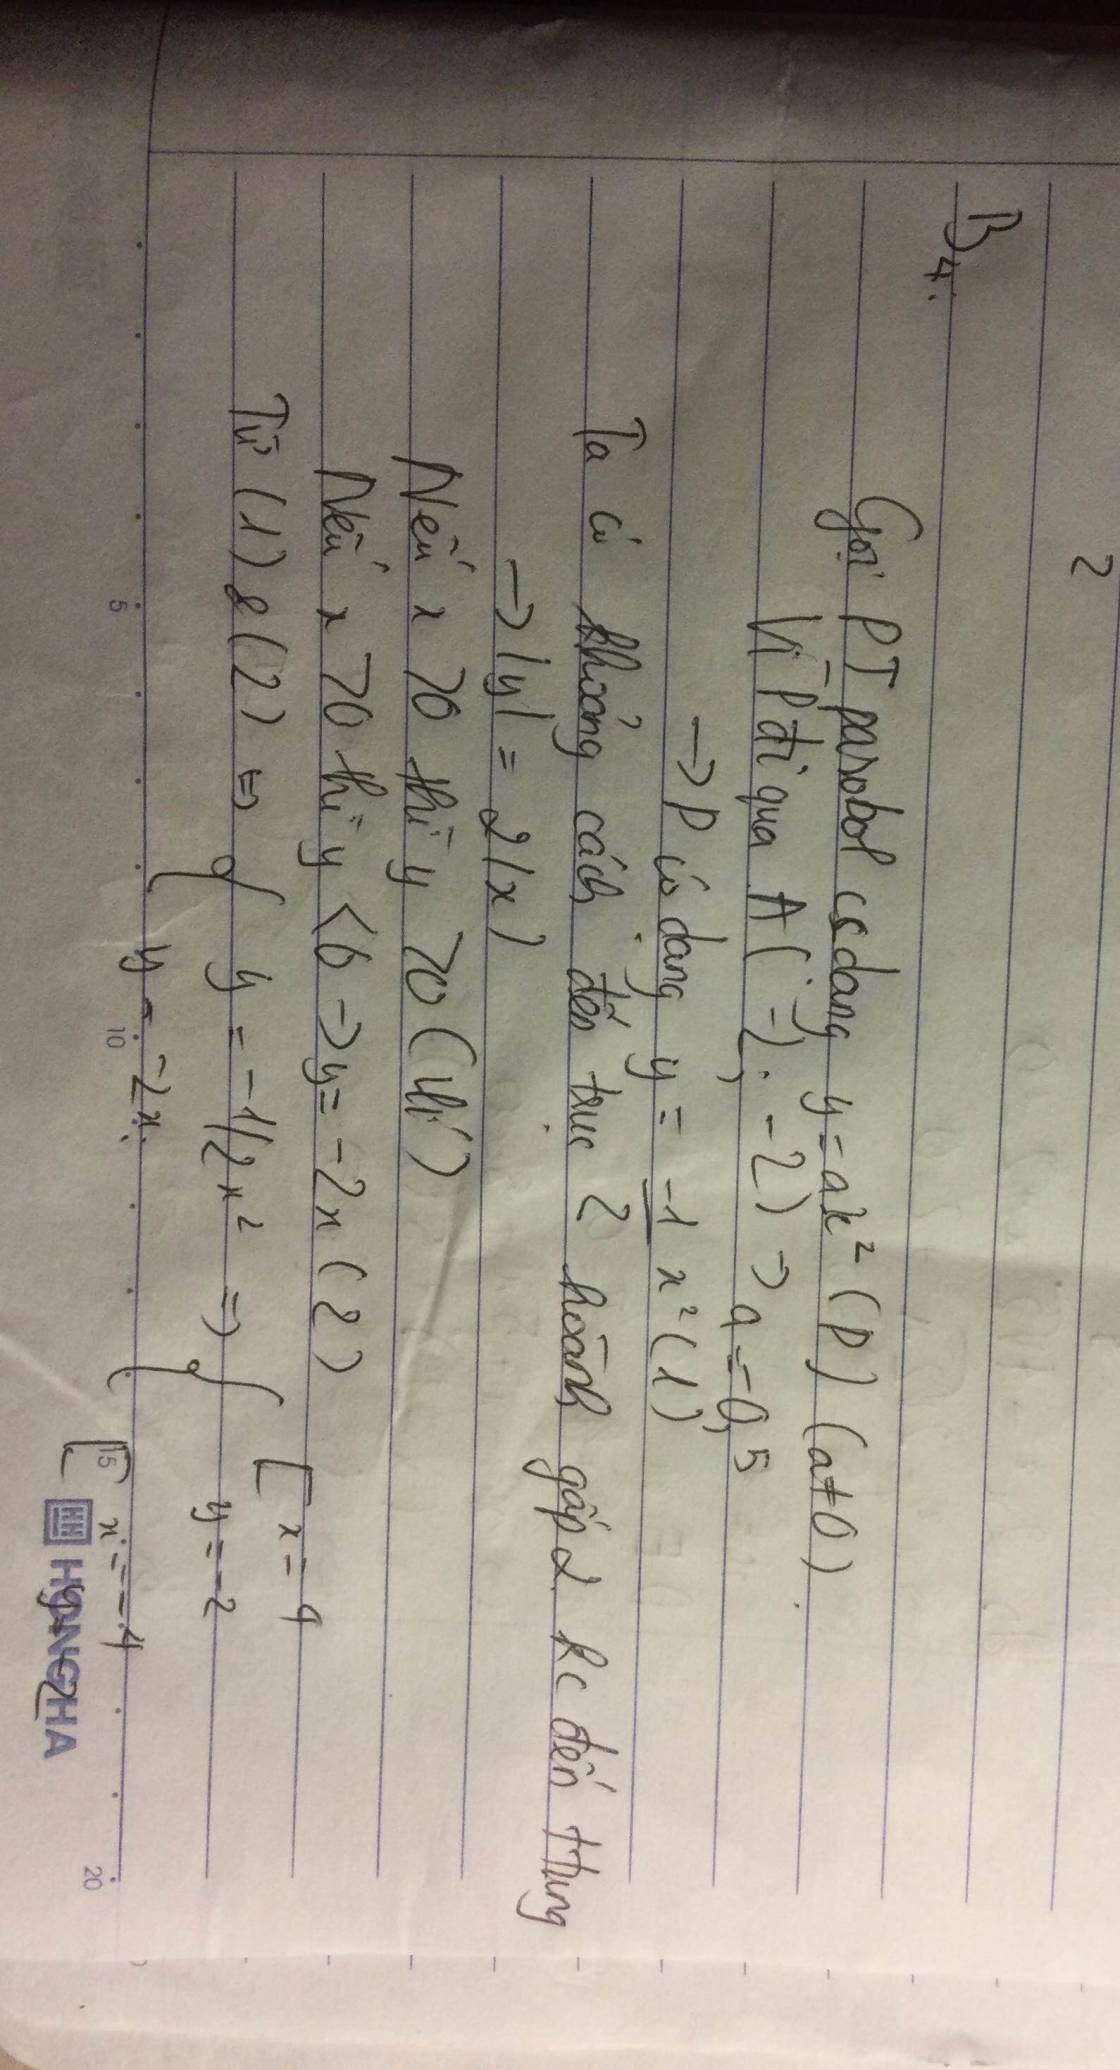 2
B4.
Gọi PT parabol có dạng y = ax² (P) (a≠0).
Vì P đi qua A(-2; -2) → a = -0,5
→ P có dạng y = -1 x² (1)
Ta có khoảng cách đến trục 2 hoành gấp 2 kc đến ttung
→ |y| = 2|x|
Nếu x >0 thì y >0 (vlí)
Nếu x >0 thì y <0 → y = -2x (2)
Từ (1) & (2) => { y = -1/2x² => { [ x = 4
y = -2x. y = -2
[ x = -4
5 10 15 20
HH HONG HA